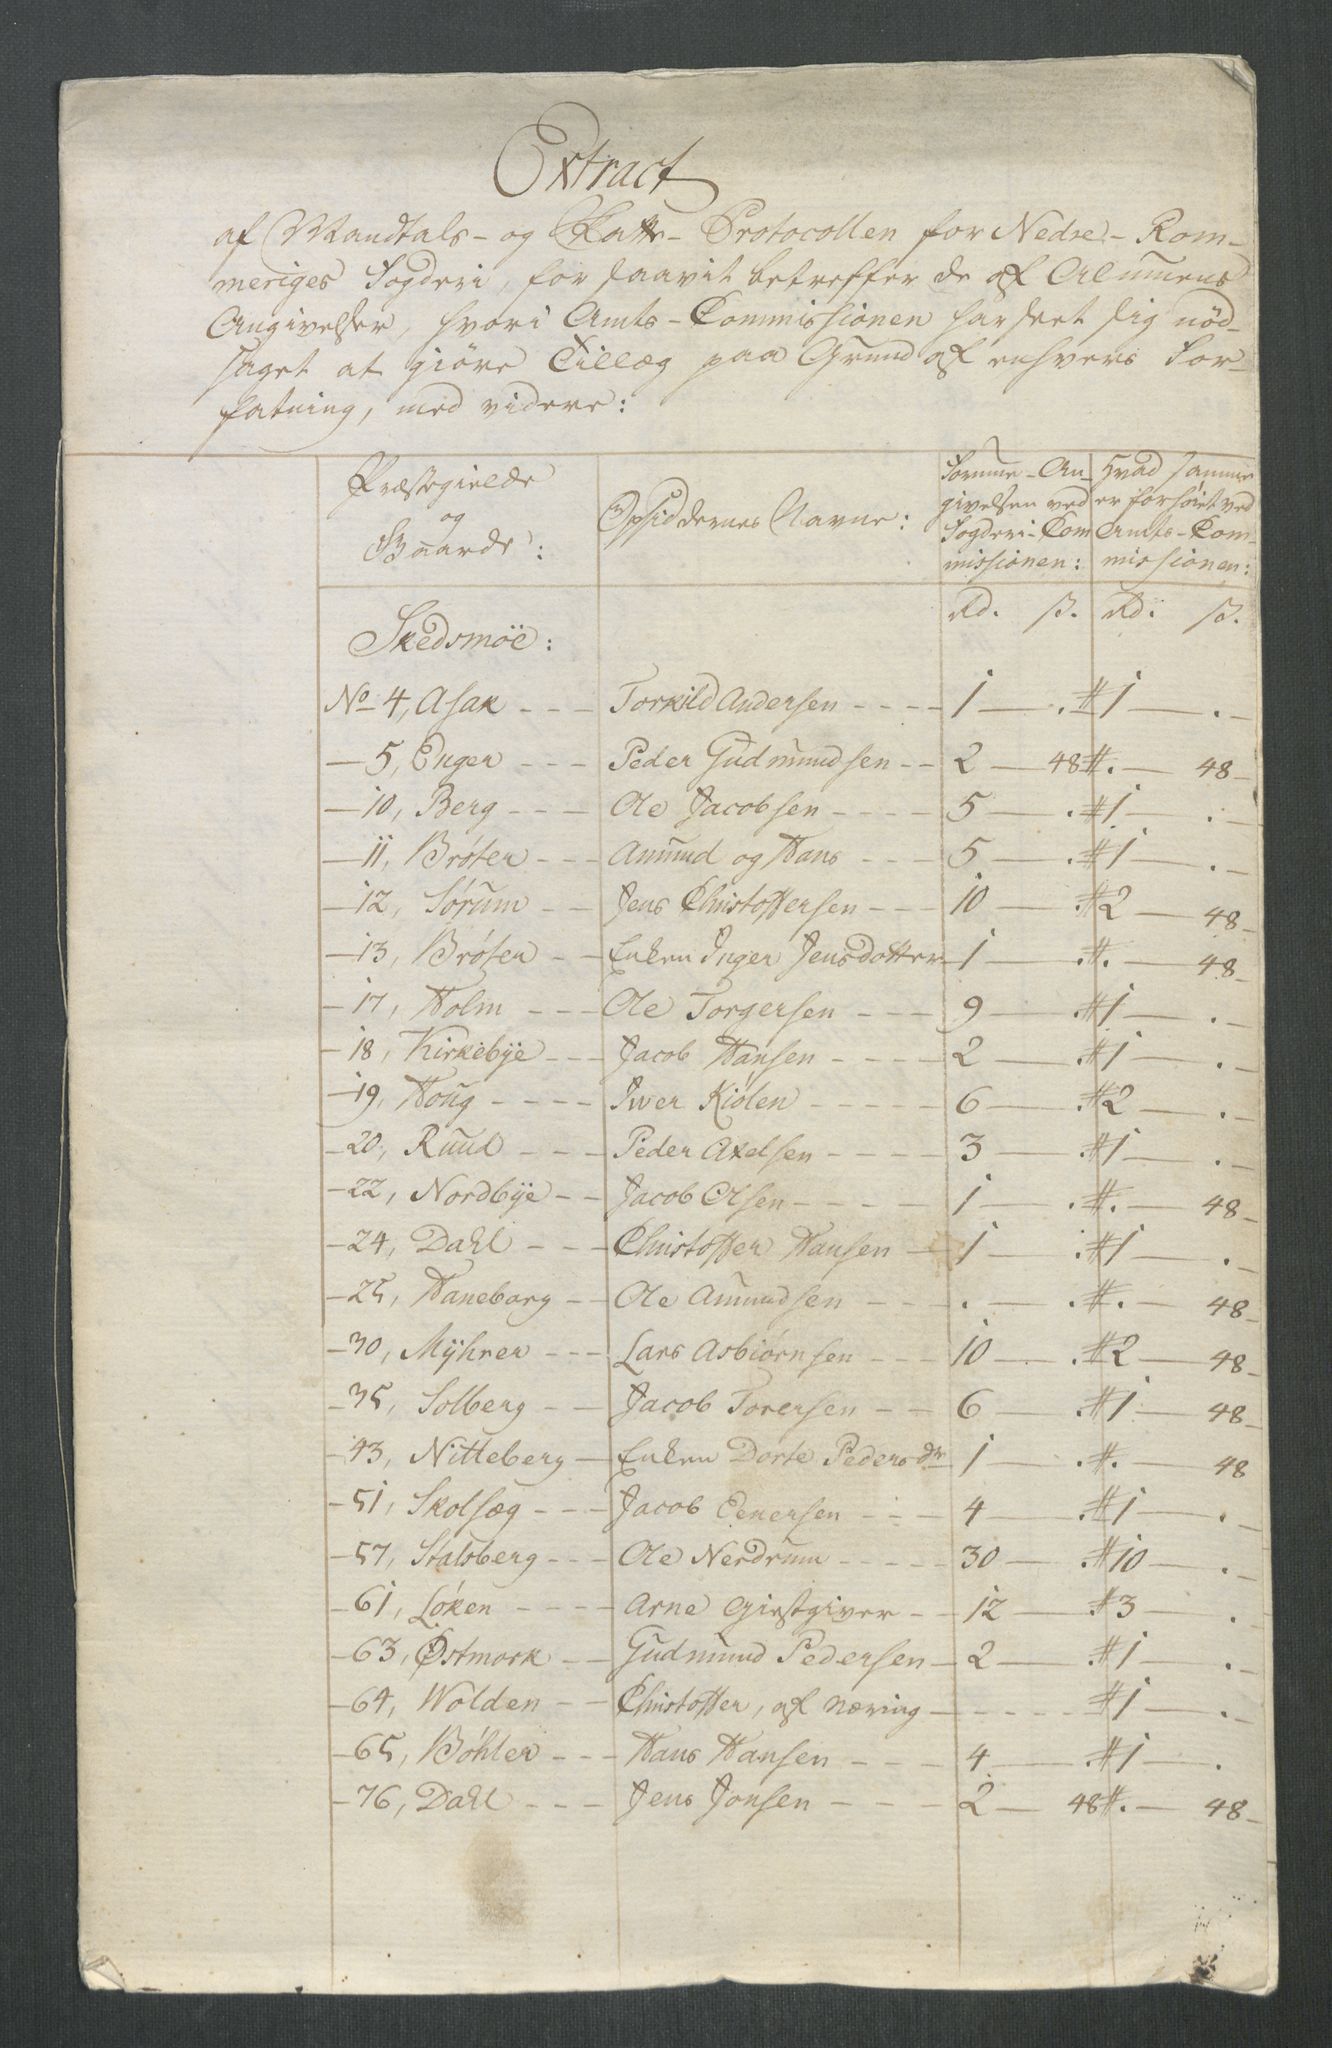 Extract
af Mandtals- og Skatte-Protocollen for Nedre-Rom-
meriges Fogderi, for saavit betreffer de af Almuens
Angivelser, hvori Amts-Commissionen har seet sig nød-
saget at giøre Tillæg paa Grund af enhvers For-
fatning, med videre:
Præstegielde og Gaarde: Opsiddernes Navne: Somme-Angivelsen ved Fogderi-Commissionen: Hvad samme er forhøiet ved Amts-Commissionen:
Rd. ß. Rd. ß.
Skedsmöe:
No 4, Asak - - - Torkild Andersen - - - - 1 — . # 1 — . -
- 5, Enger - - - Peder Gudmundsen - - 2 — 48 # . — 48 -
- 10, Berg - - - Ole Jacobsen - - - - 5 — . # 1 — . -
- 11, Brøter - - - Amund og Hans - - - 5 — . # 1 — . -
- 12, Sørum - - Jens Christoffersen - - - 10 — . # 2 — 48 -
- 13, Brøter - - Enken Inger Jensdotter - 1 — . # . — 48 -
- 17, Holm - - - Ole Torgersen - - - 9 — . # 1 — . -
- 18, Kirkebÿe - - Jacob Hansen - - - - 2 — . # 1 — . -
- 19, Houg - - - - Iwer Kiølen - - - - - 6 — . # 2 — . -
- 20, Ruud - - - Peder Axelsen - - - - 3 — . # 1 — . -
- 22, Nordbÿe - - Jacob Olsen - - - - - 1 — . # . — 48 -
- 24, Dahl - - - Christoffer Hansen - 1 — . # 1 — . -
- 25, Haneborg - - Ole Amundsen - - - . — . # . — 48 -
- 30, Mÿhrer - - - Lars Asbiørnsen - - - 10 — . # 2 — 48 -
- 35, Solberg - - Jacob Torersen - - 6 — . # 1 — 48 -
- 43, Nitteberg - Enken Dorte Pedersdr 1 — . # . — 48
- 51, Skolsæg - - - Jacob Eenersen - - - 4 — . # 1 — . -
- 57, Stalsberg - - - Ole Nerdrum - - - - - 30 — . # 10 — . -
- 61, Løken - - - - Arne Giestgiver - - 12 — . # 3 — .
- 63, Østmork - - Gudmund Pedersen - 2 — . # 1 — . -
- 64, Wolden - - Christoffer, af Næring - - - - - # 1 — . -
- 65, Bøhler - - - Hans Hansen - - - 4 — . # 1 — .
- 76, Dahl - - - Jens Jonsen - - - - 2 — 48 # . — 48 -